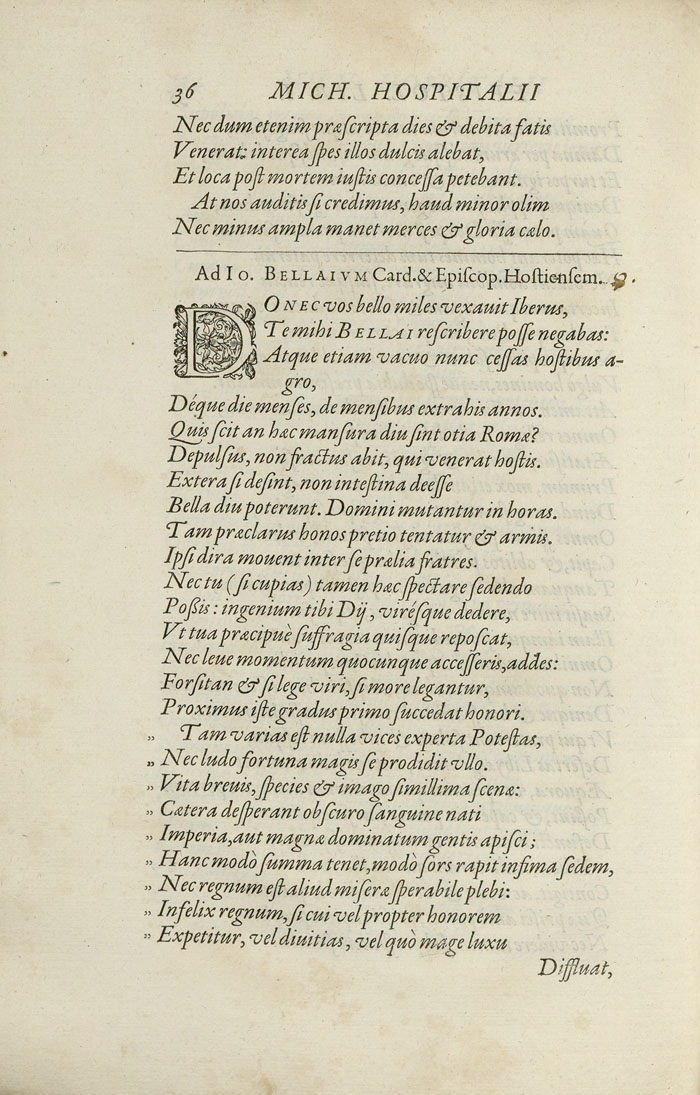 36 MICH. HOSPITALII
Nec dum etenim præſcripta dies & debita fatis
Venerat: interea ſpes illos dulcis alebat,
Et loca poſt mortem iuſtis conceſſa petebant.
At nos auditis ſi credimus, haud minor olim
Nec minus ampla manet merces & gloria cælo.
Ad IO. BELLAIVM Card. & Epiſcop. Hoſtienſem.
DONEC vos bello miles vexauit Iberus,
Te mihi BELLAI reſcribere poſſe negabas:
Atque etiam vacuo nunc ceſſas hoſtibus a-
gro,
Déque die menſes, de menſibus extrahis annos.
Quis ſcit an hæc manſura diu ſint otia Romæ?
Depulſus, non fractus abit, qui venerat hoſtis.
Extera ſi deſint, non inteſtina deeſſe
Bella diu poterunt. Domini mutantur in horas.
Tam præclarus honos pretio tentatur & armis.
Ipſi dira mouent inter ſe prælia fratres.
Nec tu (ſi cupias) tamen hæc ſpectare ſedendo
Poßis: ingenium tibi Dij, viréſque dedere,
Vt tua præcipuè ſuffragia quiſque repoſcat,
Nec leue momentum quocunque acceſſeris, addes:
Forſitan & ſi lege viri, ſi more legantur,
Proximus iſte gradus primo ſuccedat honori.
„ Tam varias eſt nulla vices experta Poteſtas,
„ Nec ludo fortuna magis ſe prodidit vllo.
„ Vita breuis, ſpecies & imago ſimillima ſcenæ:
„ Cætera deſperant obſcuro ſanguine nati
„ Imperia, aut magnæ dominatum gentis apiſci;
„ Hanc modò ſumma tenet, modò ſors rapit infima ſedem,
„ Nec regnum eſt aliud miſeræ ſperabile plebi:
„ Infelix regnum, ſi cui vel propter honorem
„ Expetitur, vel diuitias, vel quò mage luxu
Diffluat,